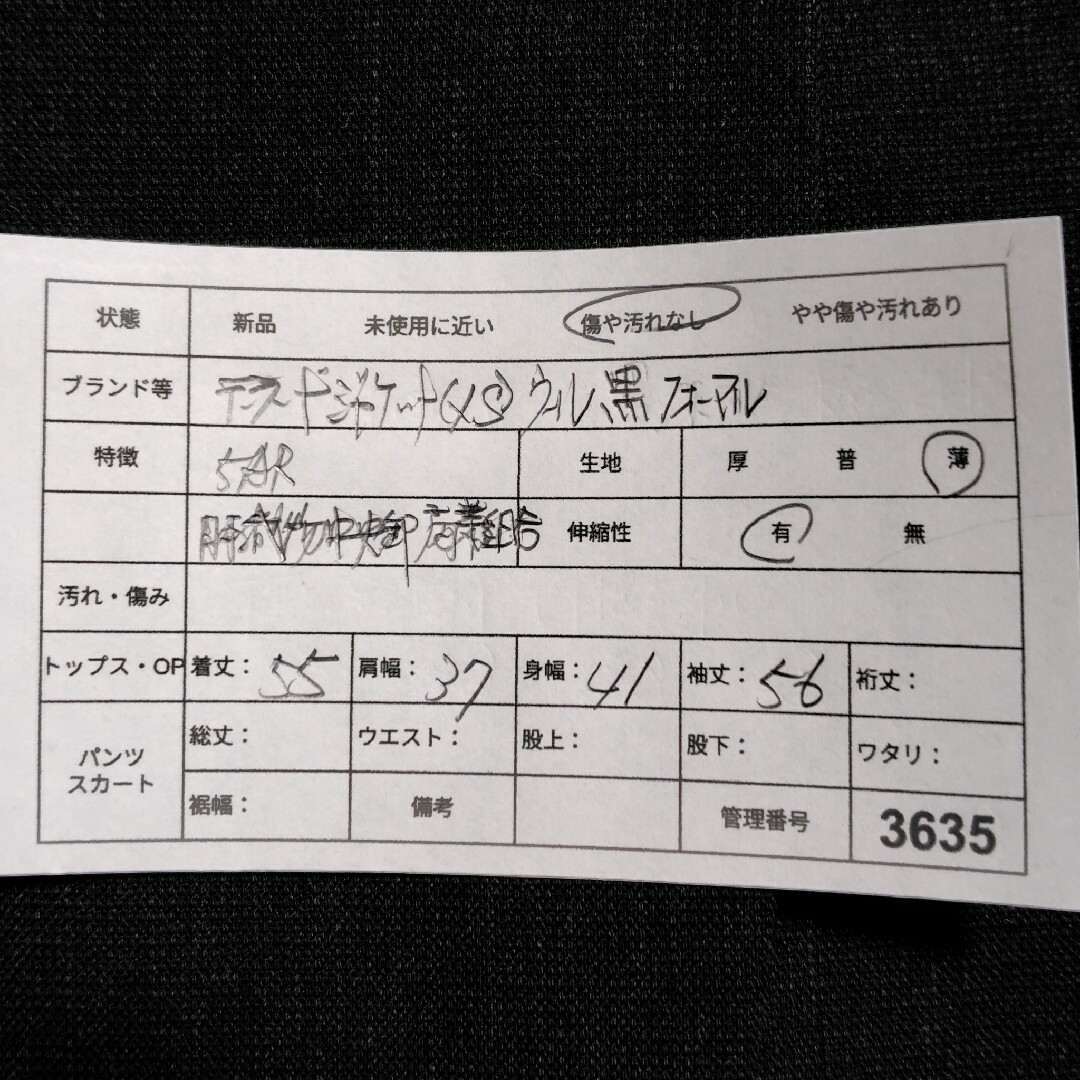 状態 新品 未使用に近い 傷や汚れなし やや傷や汚れあり
ブランド等 テーラードジャケット(XS) ウール 黒 フォーマル
特徴 5AR 生地 厚 普 薄
中央卸 組合 伸縮性 有 無
汚れ・傷み
トップス・OP 着丈： 55 肩幅： 37 身幅： 41 袖丈： 56 裄丈：
パンツ スカート 総丈： ウエスト： 股上： 股下： ワタリ：
裾幅： 備考 管理番号 3635